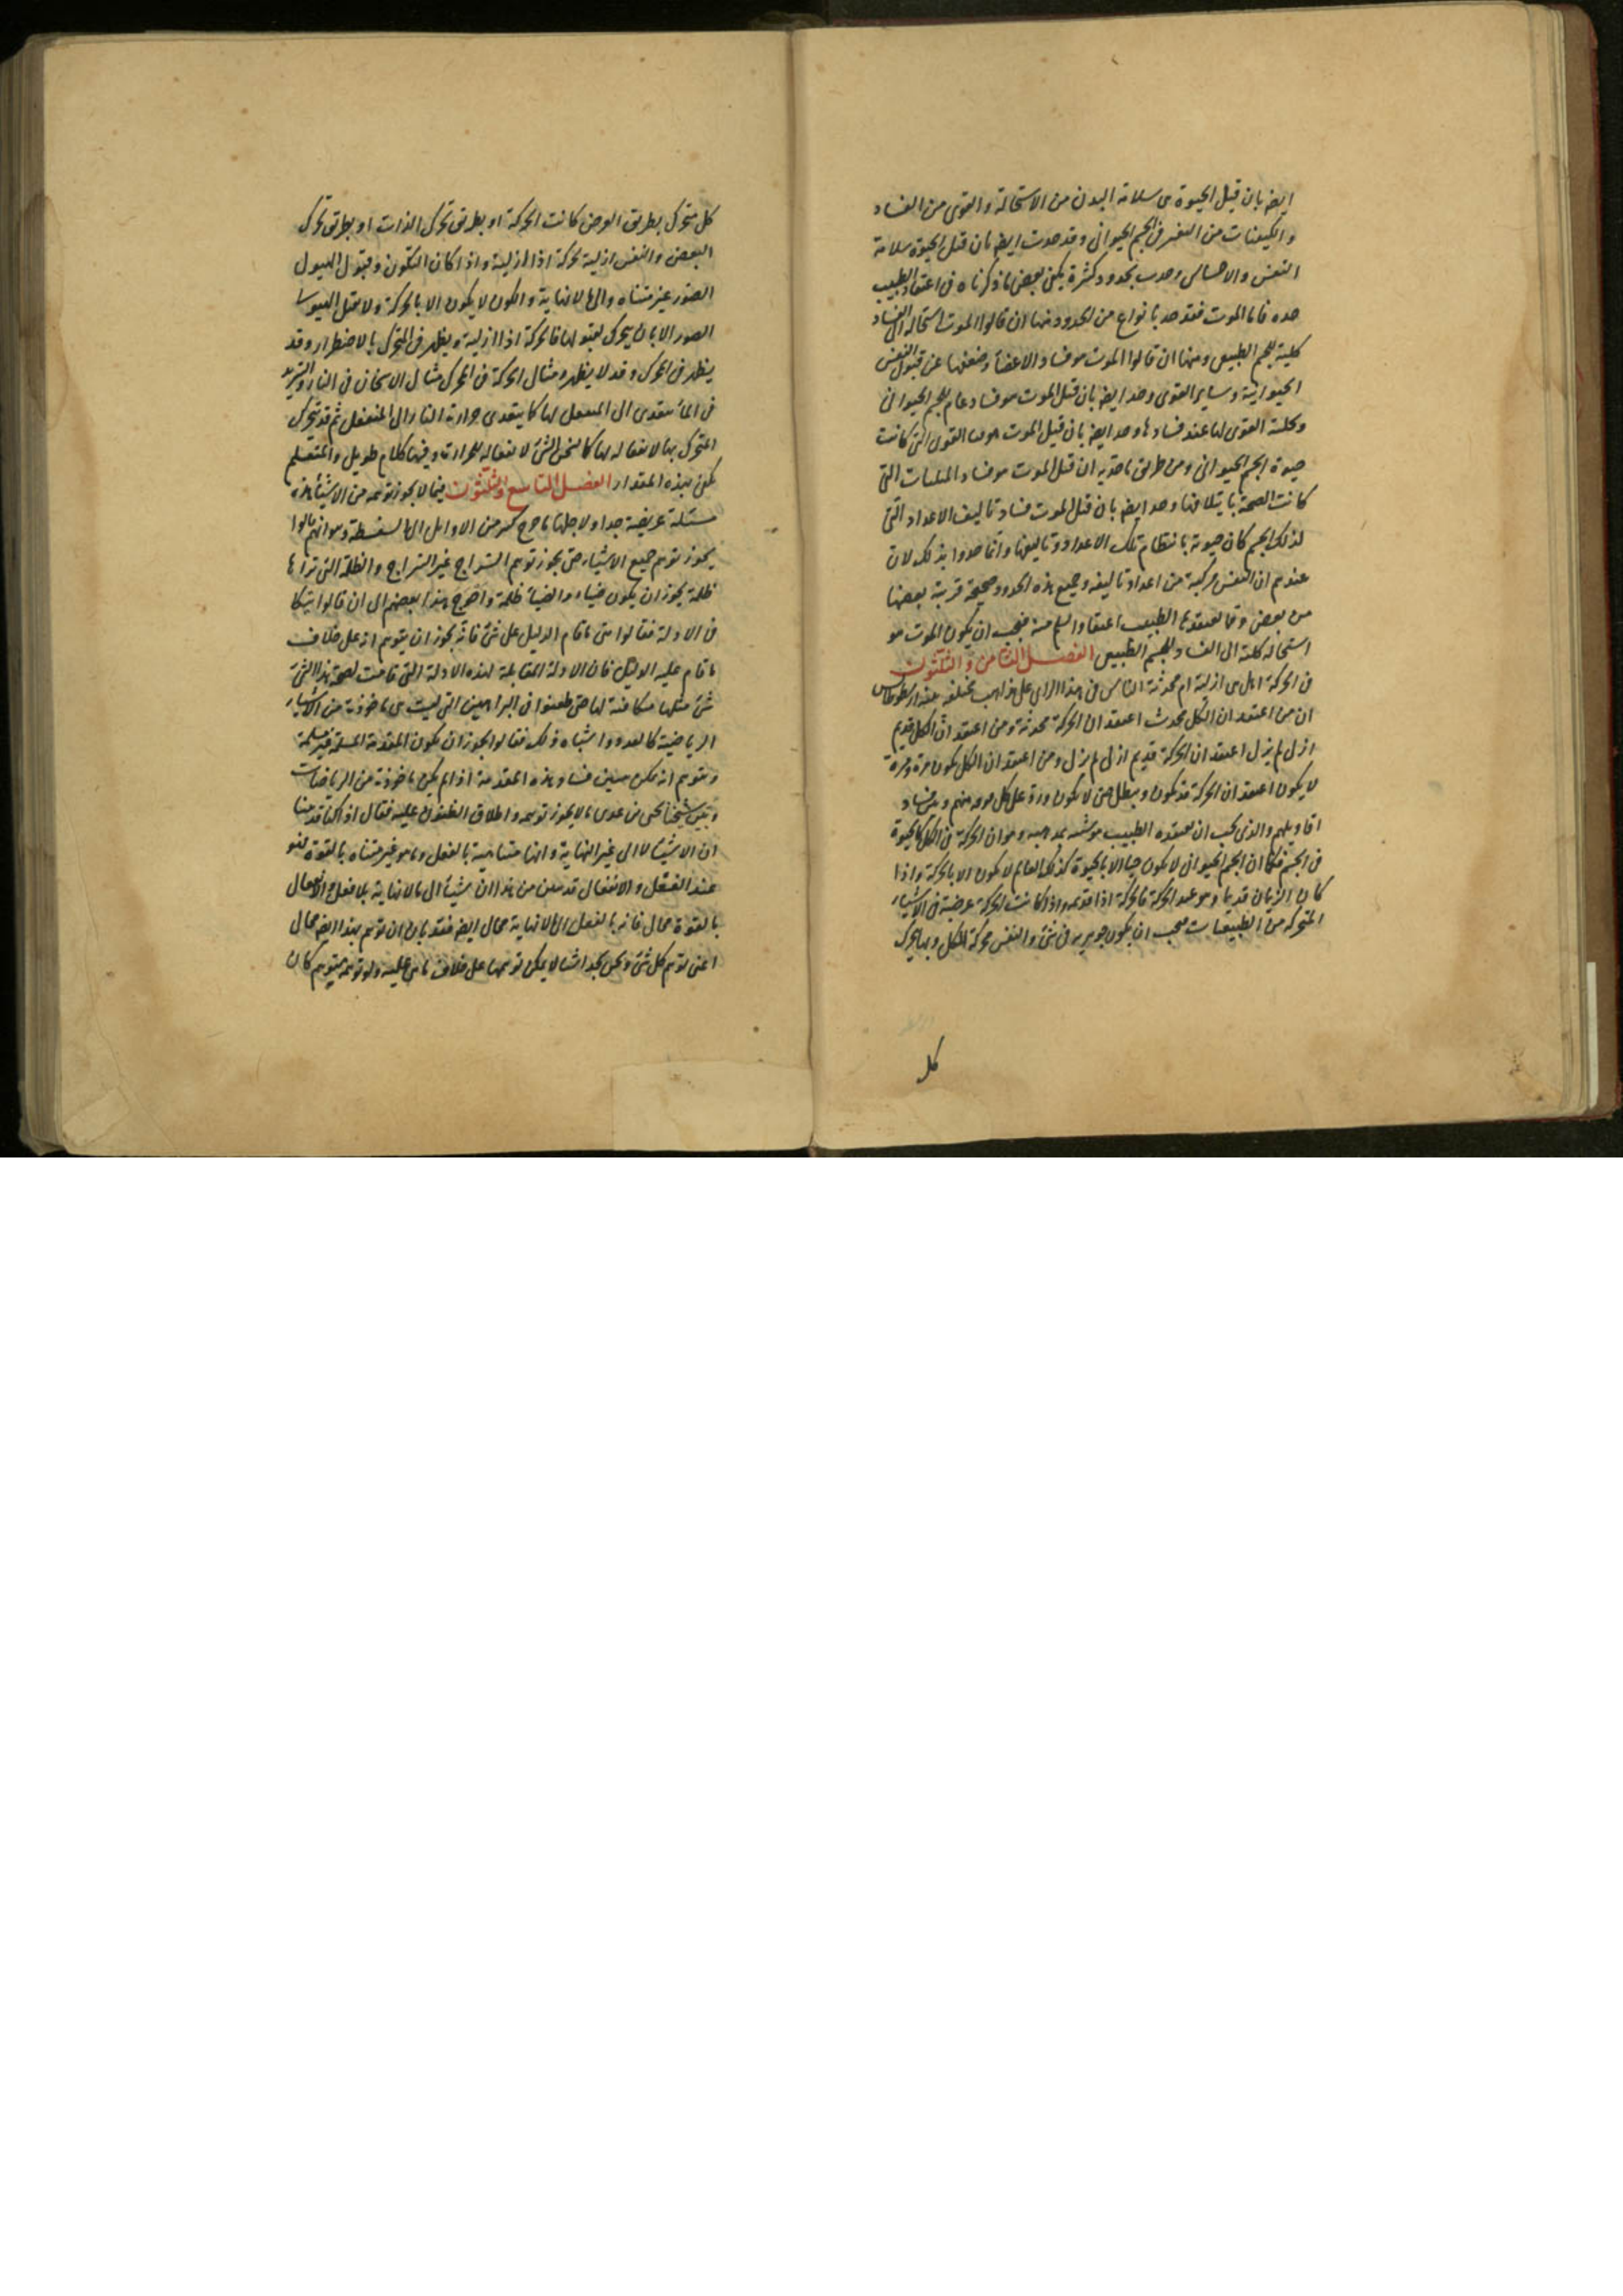 ايضه بان قيل الحيوة هى سلامة البدن من الاستحالة والقوى من الفساد
والكيفيات من التغير فى الجسم الحيوانى وقد حدت ايضه بان قيل الحيوة سلامة
النفس والاحساس وحدت بحدود كثيرة يكفى بعض ما ذكرناه فى اعتقاد الطبيب
حده فاما الموت فقد حد بانواع من الحدود منها ان قالوا الموت استحالة الى الفساد
كلية للجسم الطبيعى ومنها ان قالوا الموت هو فساد الاعضاء وضعفها عن قبول النفس
الحيوانية وساير القوى وحد ايضه بان قيل الموت هو فساد عام للجسم الحيوانى
القوى لها عند فسادها وحد ايضه بان قيل الموت القوى التى كانت
حيوة الجسم الحيوانى ومن طريق ما حد به ان قيل الموت هو فساد التى
كانت الصحة بايتلافها وحد ايضه بان قيل الموت فساد تاليف الاعداد التى
لذلك الجسم كان حيوته بانتظام تلك الاعداد وتاليفها وانما حدوا بذلك لان
عندهم ان النفس مركبة من اعداد تاليفه وجميع هذه الحدود صحيحة قريبة بعضها
من بعض وما يعتقدها الطبيب اعتقاد فيجب ان يكون الموت هو
استحالة كلية الى الفساد للجسم الطبيعى الفصل الثامن والثلثون
فى الحركة اهل هى ازلية ام محدثة الناس فى هذا الراى على مذاهب مختلفه
ان من اعتقد ان الكل محدث اعتقد ان الحركة محدثة ومن اعتقد ان الكل قديم
ازلى لم يزل اعتقد ان الحركة قديم ازلى لم يزل ومن اعتقد ان الكل يكون مرة ومرة
لا يكون اعتقد ان الحركة قد تكون وتبطل حتى لا تكون ورد على كل منهم وبين فساد
اقاويلهم والذى يجب ان يعتقده الطبيب وهو ان الحركة فى الكل كالحيوة
فى الجسم فكما ان الجسم الحيوانى لا يكون حيا الا بالحيوة كذلك العالم لا يكون الا بالحركة واذا
كان الزمان قديما وهو عدد الحركة فالحركة اذا قديمه واذا كانت الحركة عرضية فى الاشياء
المتحركة من الطبيعيات يجب ان يكون جوهريه فى شئ والنفس محركة للكل وبها يتحرك
كل
كل متحرك بطريق العرض كانت الحركة او بطريق تحرك الذات او بطريق تحرك
البعض والنفس ازلية فالحركة اذا ازلية واذا كان التكون وقبول الهيولى
الصور غير متناه والى لا نهاية والكون لا يكون الا بالحركة ولا يقبل الهيولى
الصور الا بان يتحرك لقبولها فالحركة اذا ازلية ويظهر فى المتحرك بالاضطرار وقد
يظهر فى المحرك وقد لا يظهر ومثال الحركة فى المحرك مثال الاسخان فى النار والتبريد
فى الماء يتعدى الى المنفعل لها كما يتعدى حرارة النار الى المنفعل ثم قد يتحرك
المتحرك بها لانفعاله لها كما يسخن الشئ لانفعاله للحرارة وفيها كلام طويل والمتعلم
يكفى بهذه المقدار الفصل التاسع والثلثون فيما لا يجوز توهمه من الاشياء هذه
مسئلة عريضة جدا ولاجلها ما خرج كثير من الاوايل الى السفسطة وهو انهم قالوا
يجوز توهم جميع الاشياء حتى يجوز توهم السراج غير السراج والظلمة التى تراها
ظلمة يجوز ان يكون ضياء والضياء ظلمة واخرج هذا بعضهم الى ان قالوا
فى الادلة فقالوا متى ما قام الدليل على شئ فانه يجوز ان يتوهم انه على خلاف
ما قام عليه الدليل فان الادلة المقابلة لهذه الادلة التى قامت لصحة هذا الشئ
شئ مثلها مكافئة لها حتى طعنوا فى البراهين التى ليست هى ماخوذة من الاشياء
الرياضية كالعدد واشباه ذلك فقالوا يجوز ان تكون المقدمة المسلمة غير مسلمة
ويتوهم انه يمكن تبيين فساد هذه المقدمة اذا لم يكن ماخوذة من الرياضيات
وبين شيخنا يحيى بن عدى ما لا يجوز توهمه واطلاق الظنون عليه فقال اذا كنا قد بينا
ان الاشياء لا الى غير النهاية وانها متناهية بالفعل وما هو غير متناه بالقوة فهو
عند الفعل والانفعال قد تبين من هذا ان شيئا الى ما لا نهاية بلا فعل
بالقوة محال فانه بالفعل الى ما لا نهاية محال ايضه فقد بان ان توهم هذا ايضه محال
اعنى توهم كل شئ ونحن نجد اشياء لا يمكن توهمها على خلاف ما هى عليه ولو توهمه متوهم كان